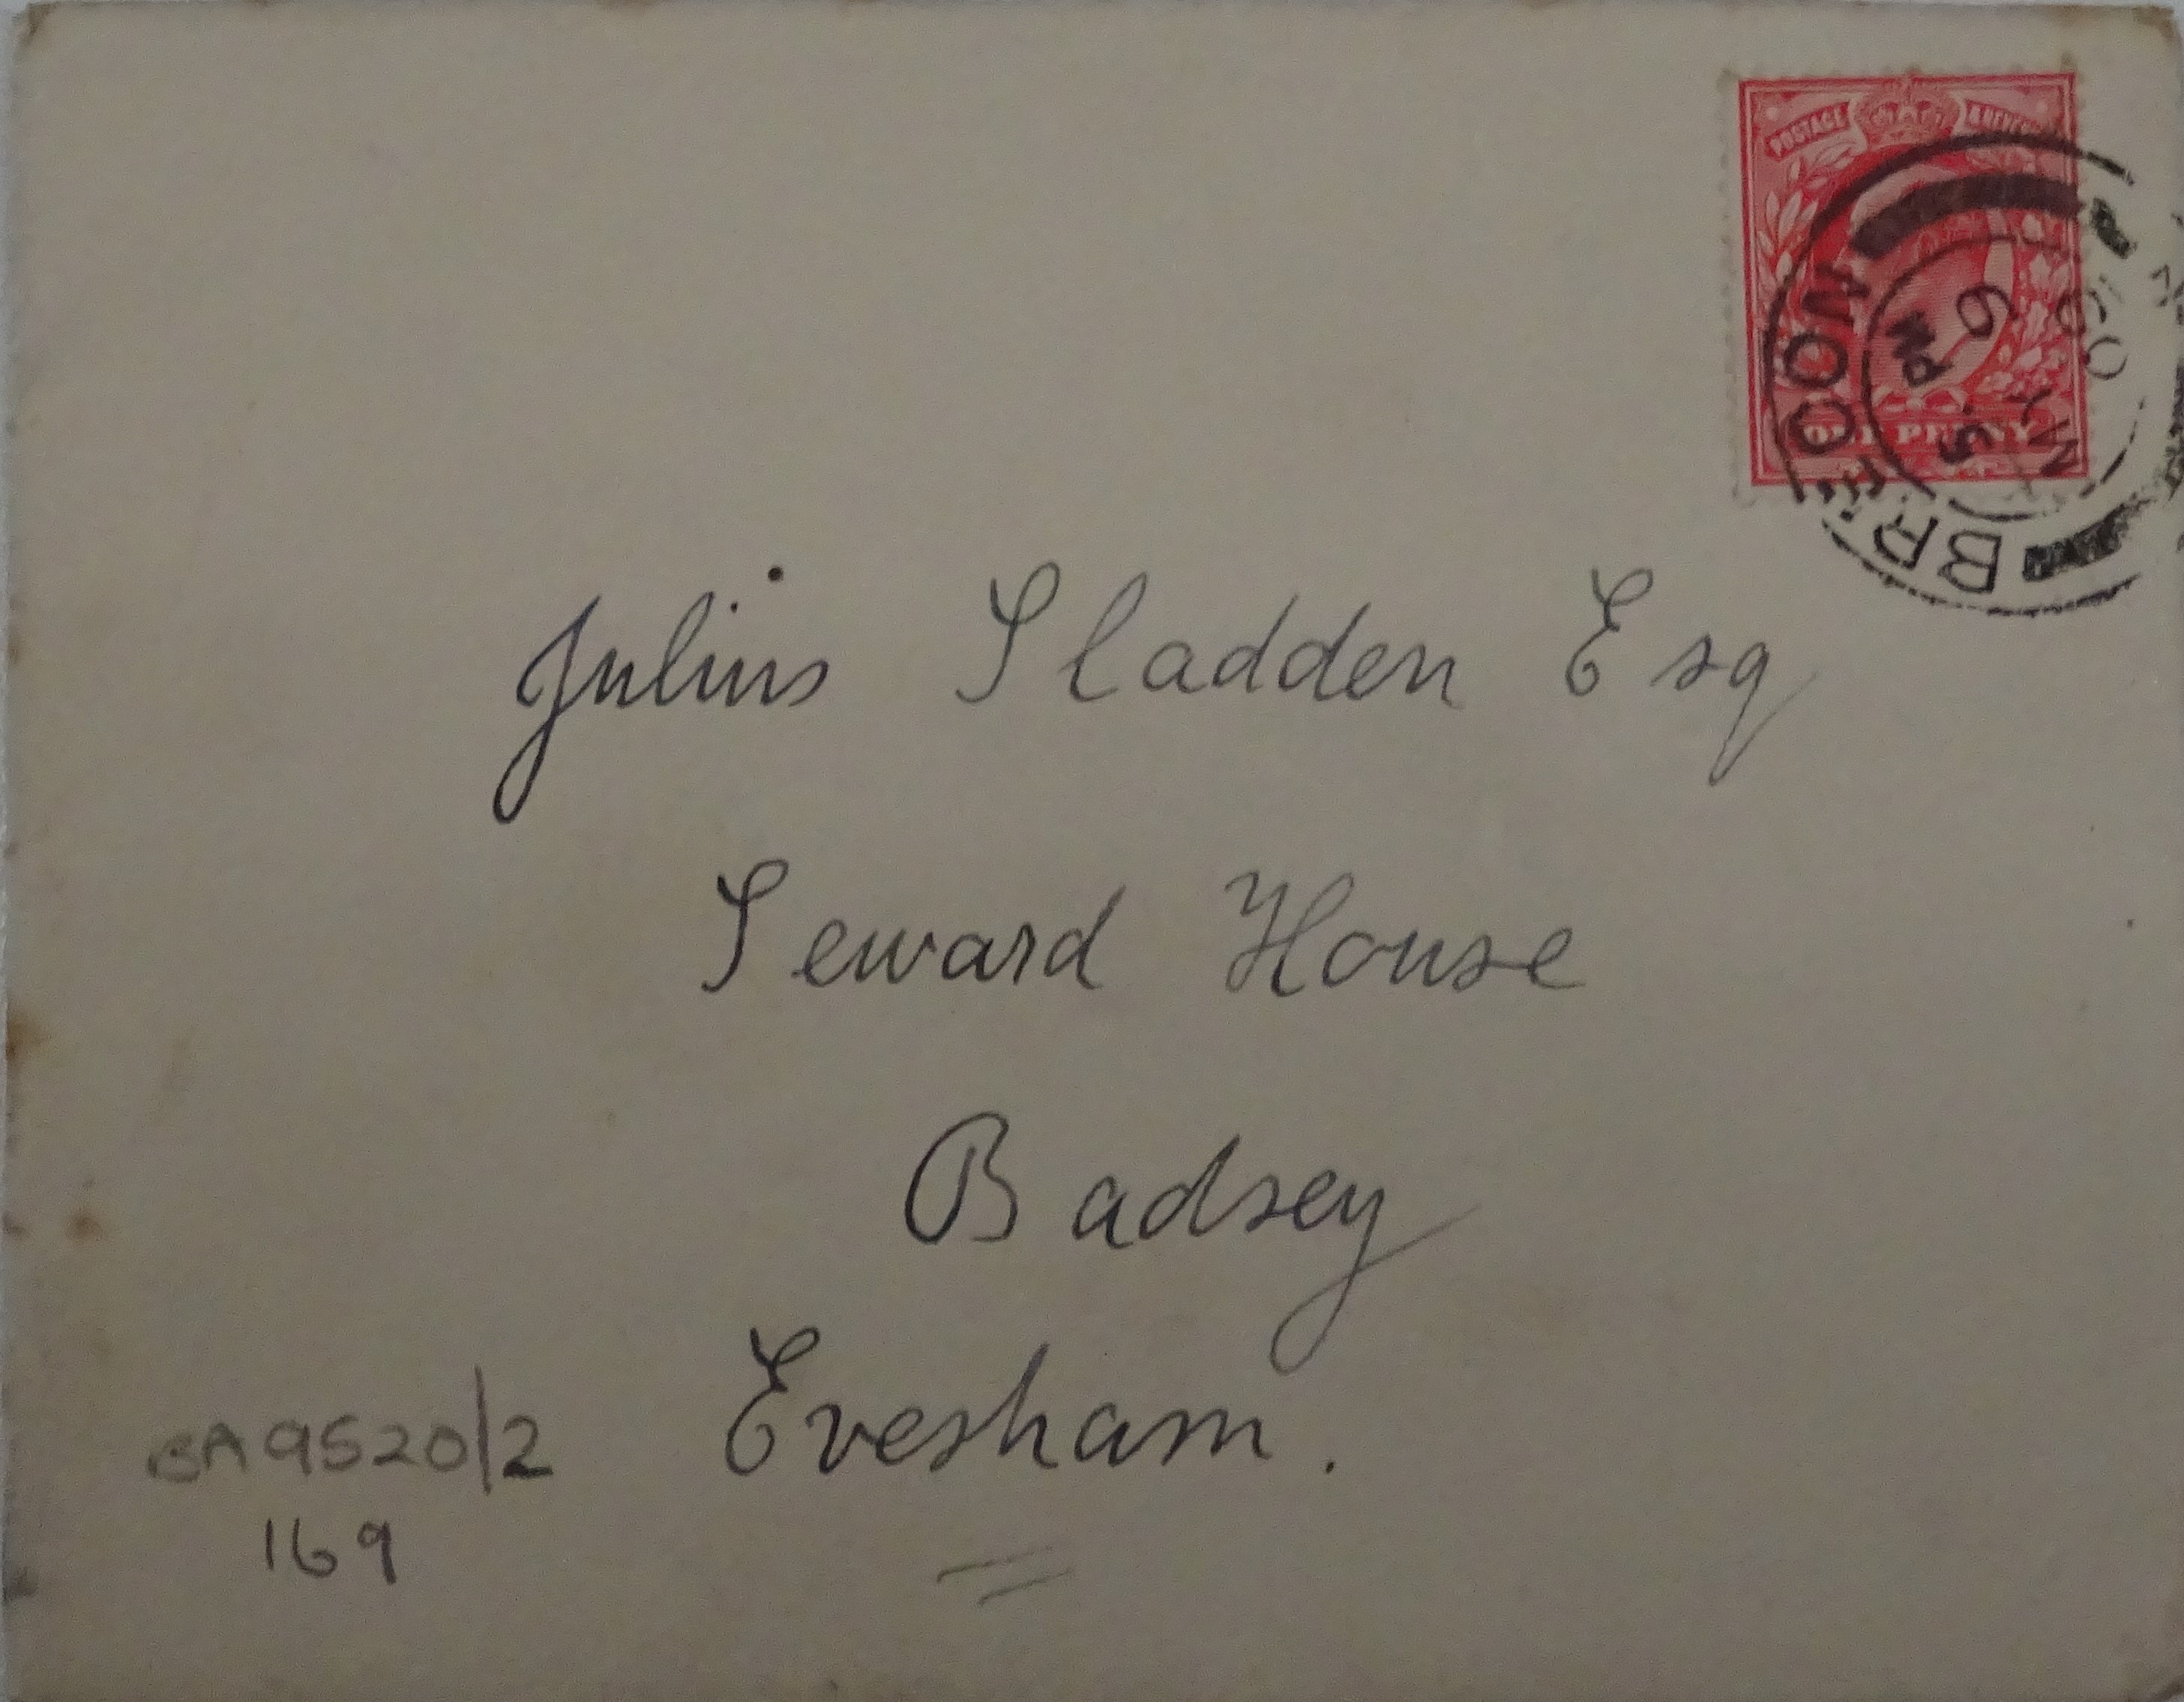 POSTAGE & REVENUE
ONE PENNY
BRECON
5 PM
MY 9
09
Julius Sladden Esq
Seward House
Badsey
Evesham.
BA9520/2
169